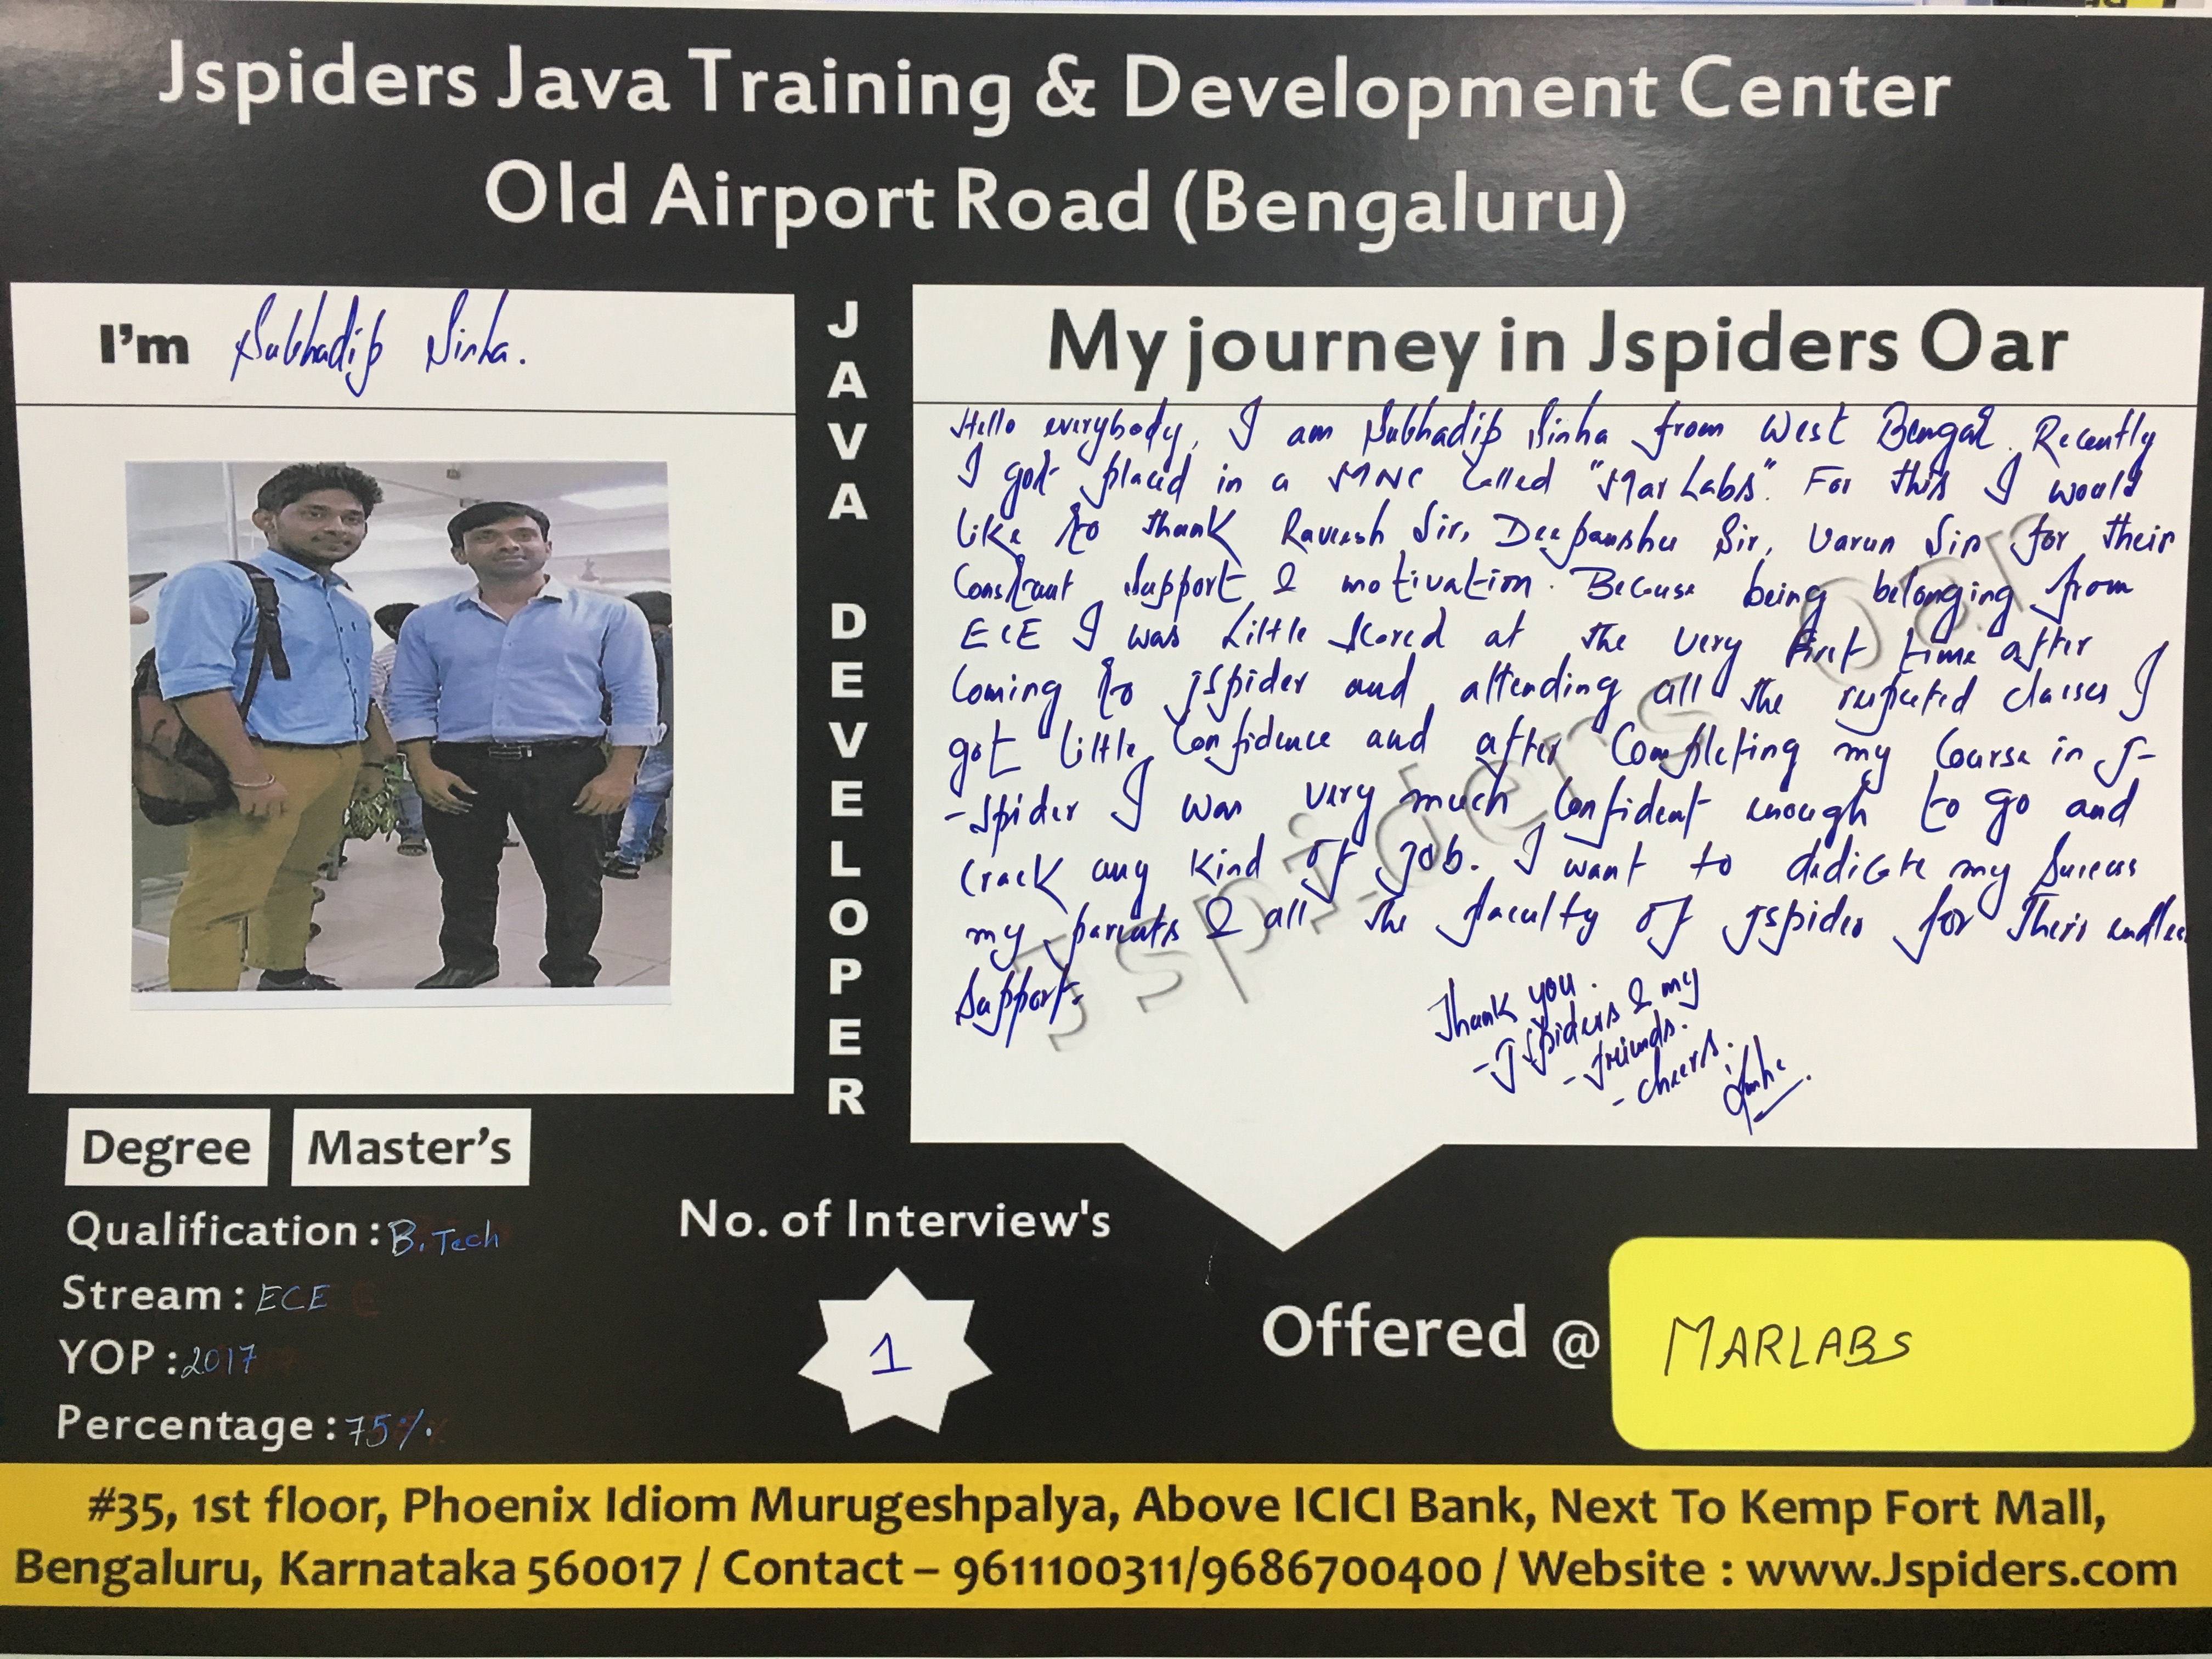 Jspiders Java Training & Development Center
Old Airport Road (Bengaluru)
I'm Subhadip Sinha.
JAVA DEVELOPER
My journey in Jspiders Oar
Hello everybody, I am Subhadip Sinha from West Bengal. Recently
I got placed in a MNC called "Mar Labs". For this I would
like to thank Ravish Sir, Deepanshu Sir, Varun Sir for their
constant support & motivation. Because being belonging from
ECE I was little scared at the very first time after
coming to jspider and attending all the respected classes I
got little confidence and after completing my course in J-
-spider I was very much confident enough to go and
crack any kind of job. I want to dedicate my success
my parents & all the faculty of jspider for their endless
support.
Thank you.
-Jspiders & my
-friends.
-cheers.
Sinha
Jspiders Oar
Degree Master's
Qualification : B.Tech
Stream : ECE
YOP : 2017
Percentage : 75%.
No. of Interview's
1
Offered @ MARLABS
#35, 1st floor, Phoenix Idiom Murugeshpalya, Above ICICI Bank, Next To Kemp Fort Mall,
Bengaluru, Karnataka 560017 / Contact – 9611100311/9686700400 / Website : www.Jspiders.com